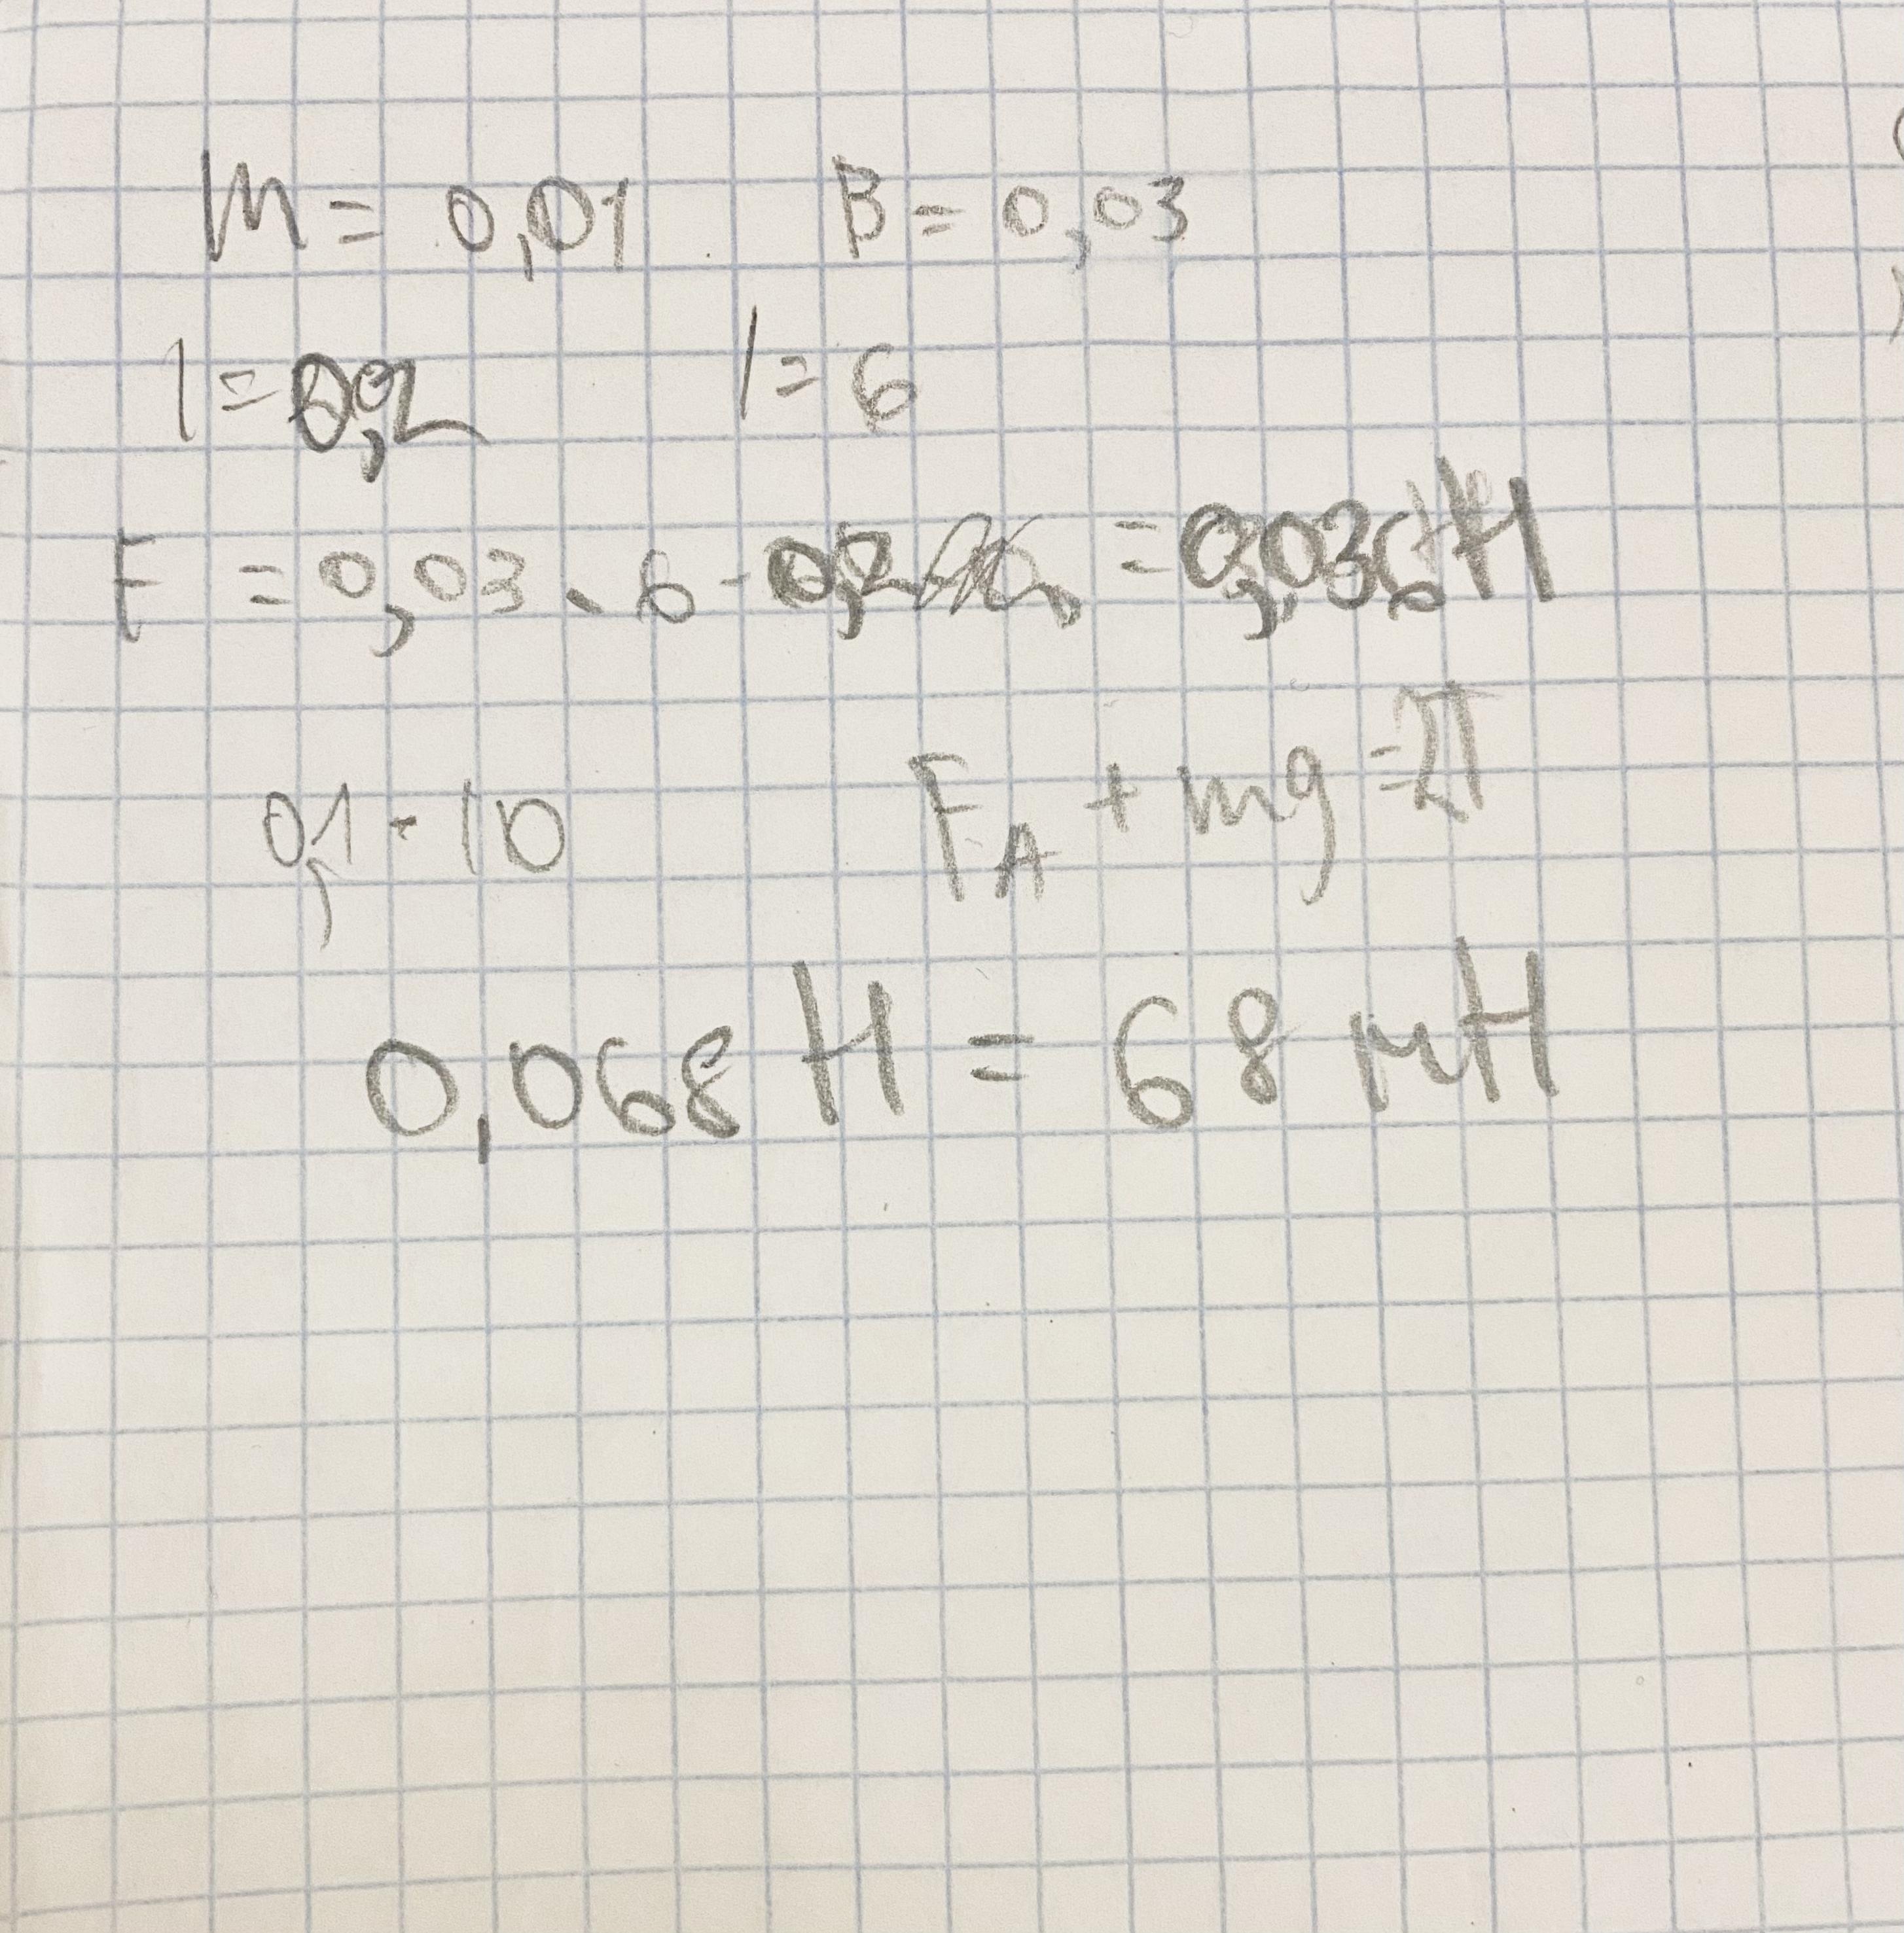 m = 0,01 B = 0,03
l = 0,2 I = 6
F = 0,03 · 6 · 0,2 = 0,036 Н
0,1 · 10 F_A + mg = 2T
0,068 Н = 68 мН